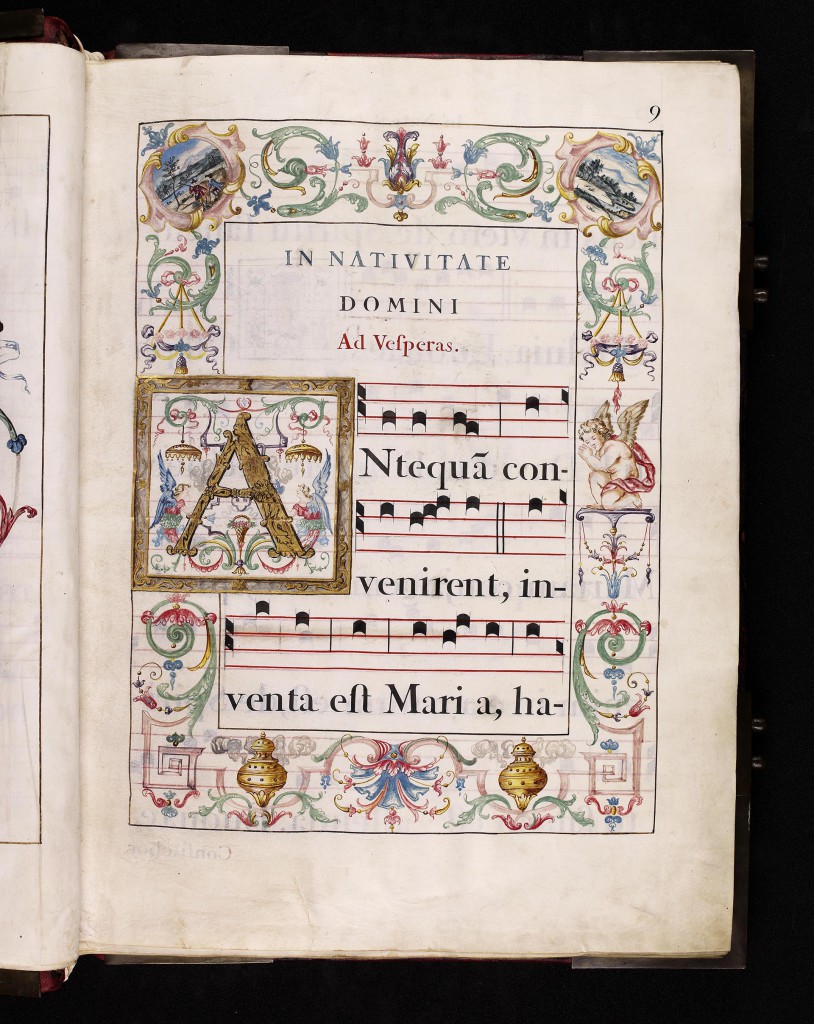 9
IN NATIVITATE
DOMINI
Ad Veſperas.
ANtequã con-
venirent, in-
venta eſt Mari a, ha-